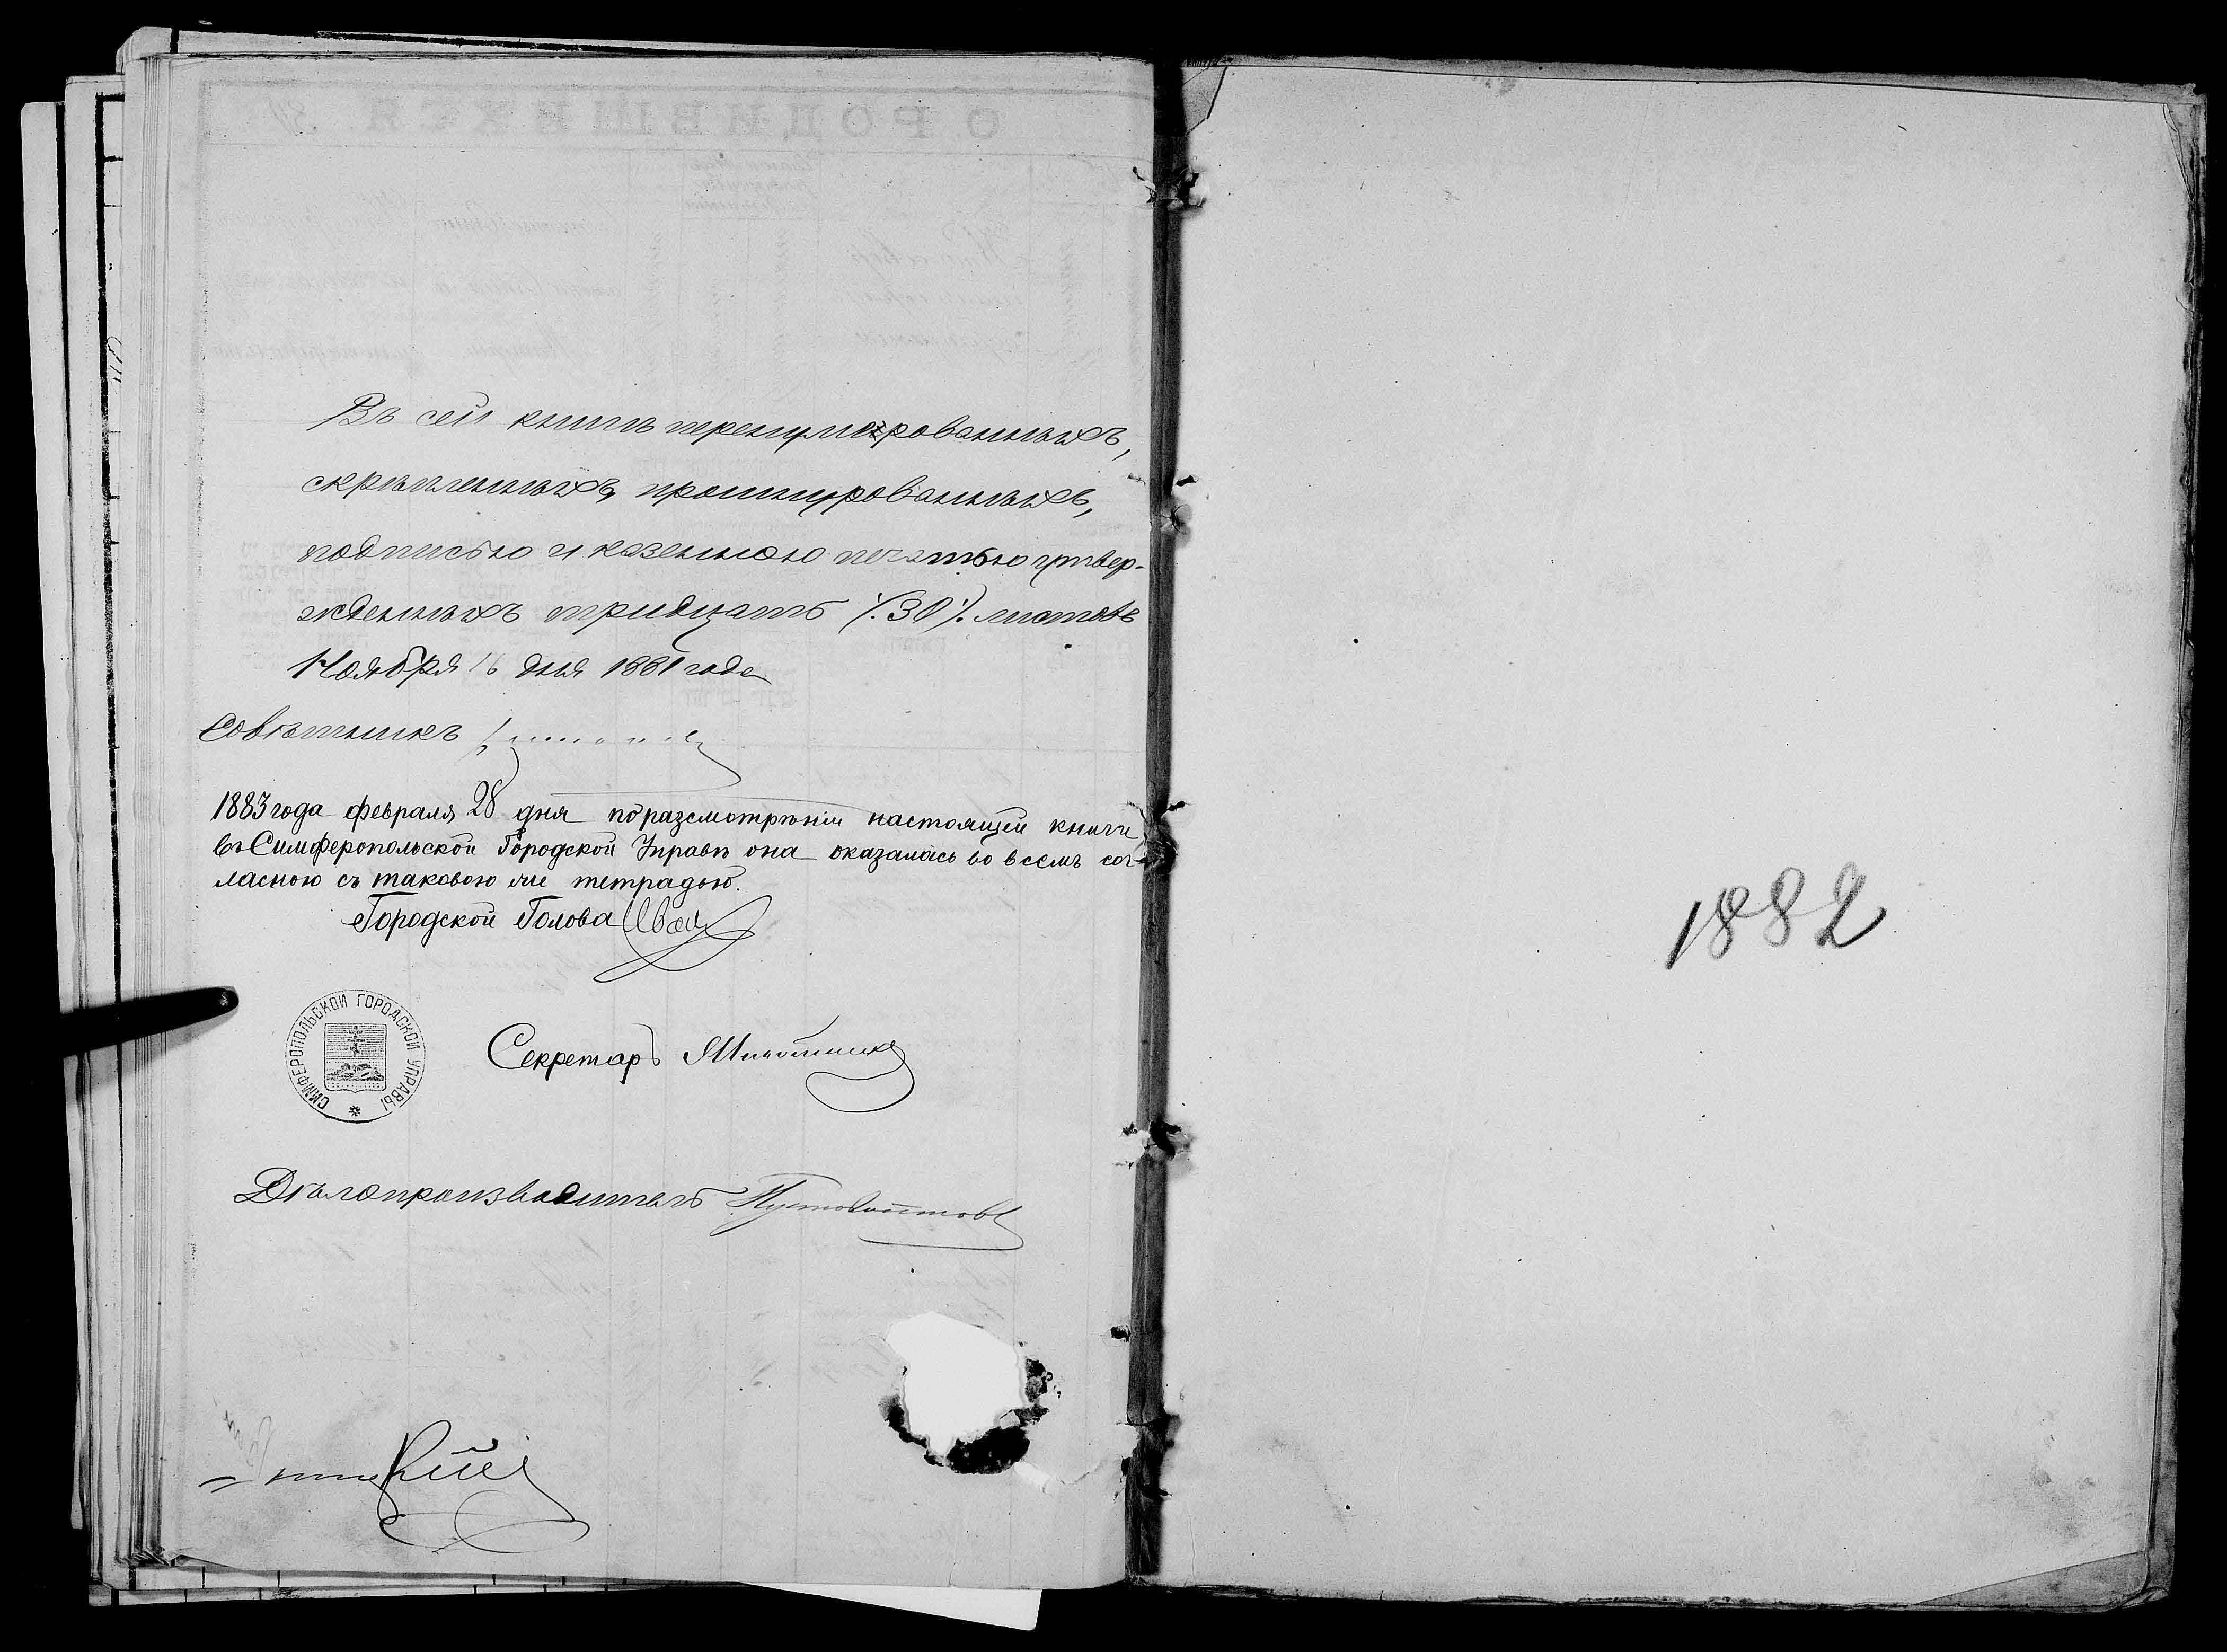 Въ сей книгѣ перенумерованныхъ,
скрѣпленныхъ, прошнурованныхъ,
подписью и казенною печатью утвер-
жденныхъ тридцать (:30:) листовъ
Ноября 16 дня 1881 года
Совѣтникъ
1883 года февраля 28 дня по разсмотрѣніи настоящей книги
въ Симферопольской Городской Управѣ она оказалась во всемъ сог-
ласною съ таковою же тетрадью.
Городской Голова Иван
СИМФЕРОПОЛЬСКОЙ ГОРОДСКОЙ УПРАВЫ
Секретарь
Дѣлопроизводитель Пустовойтовъ
1882